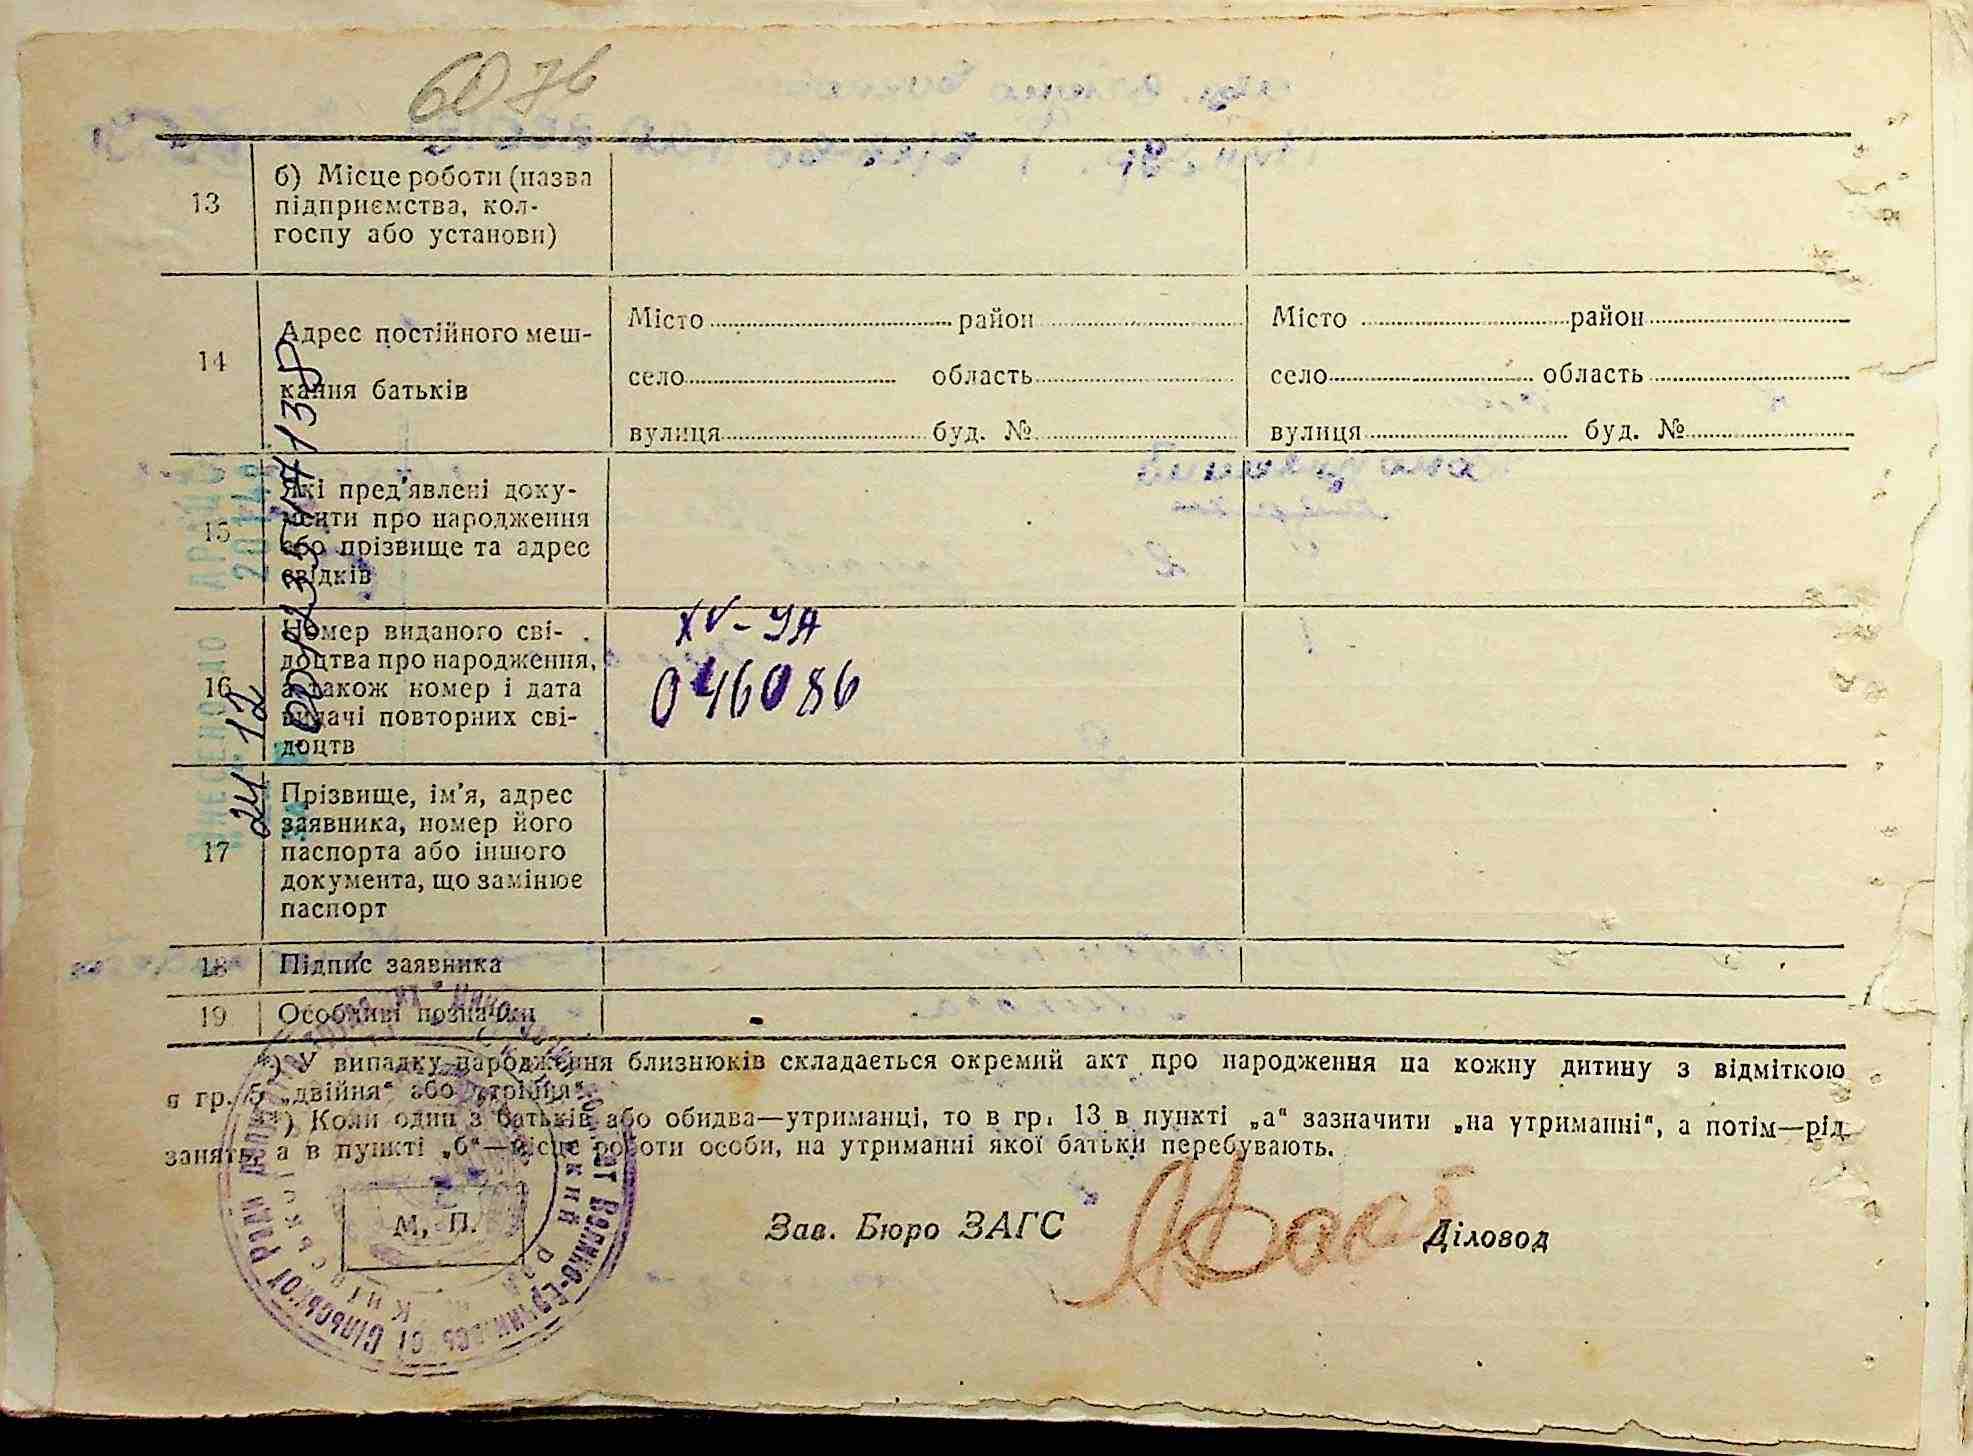 6076
13
б) Місце роботи (назва
підприємства, кол-
госпу або установи)
14
Адрес постійного меш-
кання батьків
Місто район
село область
вулиця буд. №
Місто район
село область
вулиця буд. №
15
Які пред'явлені доку-
менти про народження
або прізвище та адрес
свідків
16
Номер виданого сві-
доцтва про народження,
а також номер і дата
видачі повторних сві-
доцтв
XV-УА
046086
17
Прізвище, ім'я, адрес
заявника, номер його
паспорта або іншого
документа, що замінює
паспорт
18
Підпис заявника
19
Особливі позначки
*) У випадку народження близнюків складається окремий акт про народження на кожну дитину з відміткою
в гр. 5 „двійня“ або „трійня“.
**) Коли один з батьків або обидва—утриманці, то в гр. 13 в пункті „а“ зазначити „на утриманні“, а потім—рід
занять, а в пункті „б“—місце роботи особи, на утриманні якої батьки перебувають.
М. П.
Зав. Бюро ЗАГС
Діловод
24 12